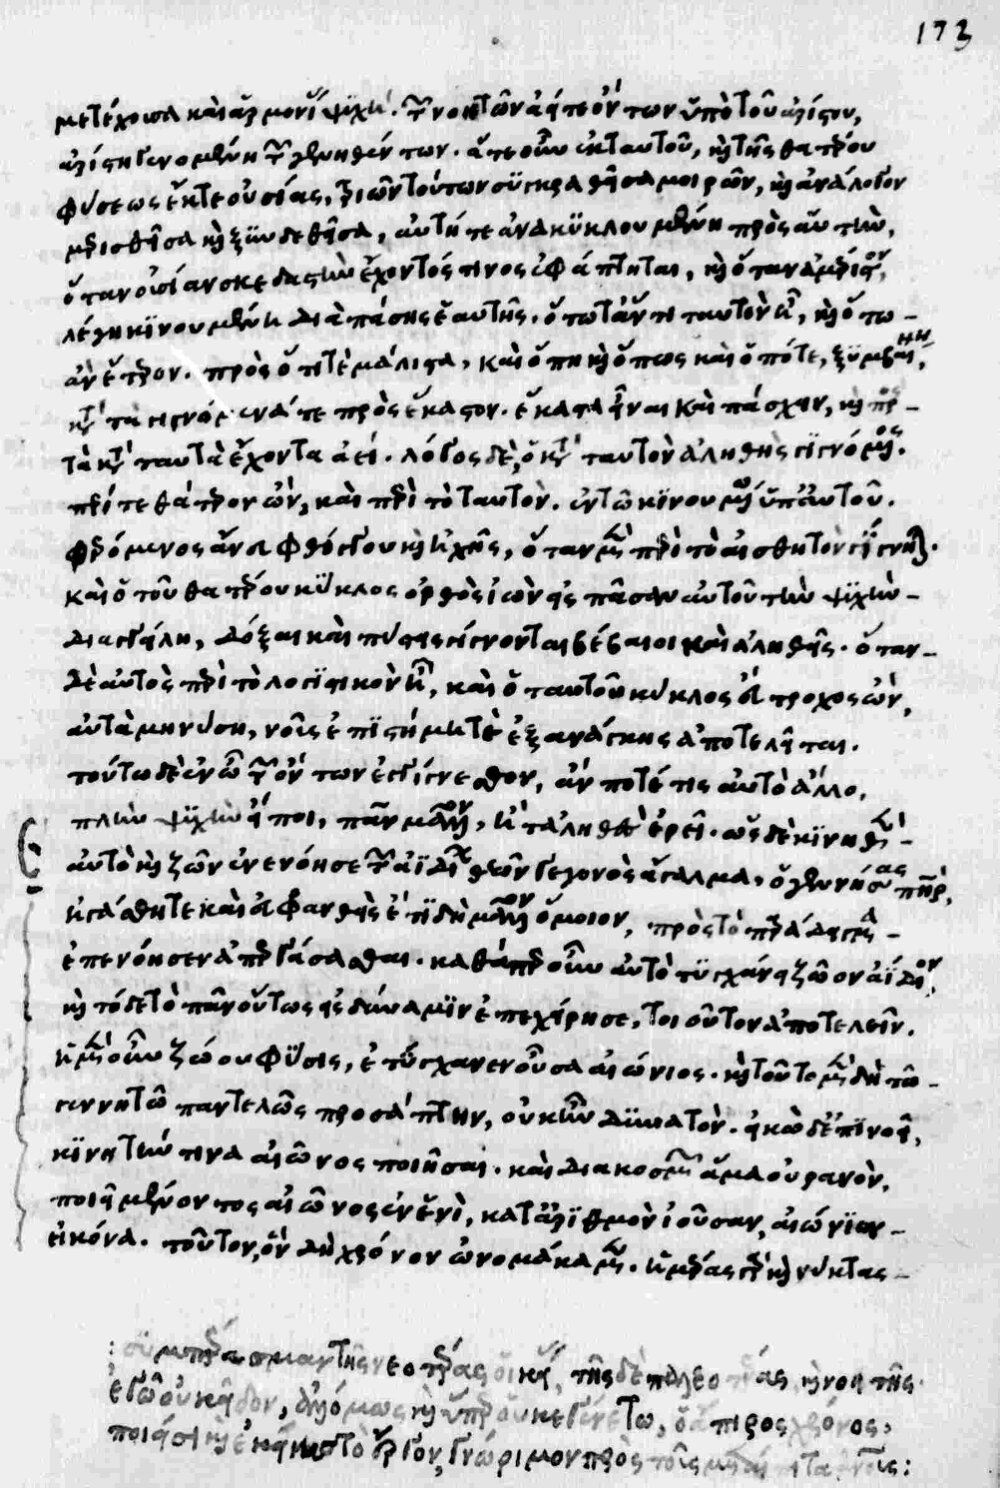 173
μετέχουσα καὶ ἁρμονίας ψυχή. τῶν νοητῶν ἀεί τε ὄντων ὑπὸ τοῦ ἀρίστου,
ἀρίστη γενομένη τῶν γεννηθέντων. ἅτε οὖν ἐκ ταυτοῦ, καὶ τῆς θατέρου
φύσεως ἔκ τε οὐσίας, τριῶν τούτων συγκραθεῖσα μοιρῶν, καὶ ἀνάλογον
μερισθεῖσα καὶ ξυνδεθεῖσα, αὐτή τε ἀνακυκλουμένη πρὸς αὑτὴν,
ὅταν οὐσίαν σκεδαστὴν ἔχοντός τινος ἐφάπτηται, καὶ ὅταν ἀμέριστον,
λέγει κινουμένη διὰ πάσης ἑαυτῆς. ὅτω τ' ἄν τι ταυτὸν ᾖ, καὶ ὅτου
ἂν ἕτερον. πρὸς ὅ τι τὲ μάλιστα, καὶ ὅπη καὶ ὅπως καὶ ὁπότε, ξυμβαίνει,
κατὰ τὰ γιγνόμενά τε πρὸς ἕκαστον. ἕκαστα εἶναι καὶ πάσχειν, καὶ πρὸς
τὰ κατὰ ταυτὰ ἔχοντα ἀεί. λόγος δὲ, ὁ κατὰ ταυτὸν ἀληθὴς γιγνόμενος.
περί τε θάτερον ὢν, καὶ περὶ τὸ ταυτὸν. ἐν τῶ κινουμένω ὑπ' αὐτοῦ.
φερόμενος ἄνευ φθόγγου καὶ ἠχῆς, ὅταν μὲν περὶ τὸ αἰσθητὸν γίγνηται.
καὶ ὁ τοῦ θατέρου κύκλος ὀρθὸς ἰὼν εἰς πᾶσαν αὐτοῦ τὴν ψυχὴν
διαγγείλη, δόξαι καὶ πίστεις γίγνονται βέβαιοι καὶ ἀληθεῖς. ὅταν
δὲ αὐτὸς περὶ τὸ λογιστικὸν ᾖ, καὶ ὁ ταυτοῦ κύκλος εὔτροχος ὢν,
αὐτὰ μηνύση, νοῦς ἐπιστήμη τὲ ἐξ ἀνάγκης ἀποτελεῖται.
τούτω δὲ ἐν ᾧ τῶν ὄντων ἐγγίγνεσθον, ἄν ποτέ τις αὐτὸ ἄλλο,
πλὴν ψυχὴν εἴποι, πᾶν μᾶλλον, ἢ τἀληθὲς ἐρεῖ. ὡς δὲ κινηθὲν
αὐτὸ καὶ ζῶν ἐνενόησε τῶν ἀϊδίων θεῶν γεγονὸς ἄγαλμα, ὁ γεννήσας πατὴρ,
ἠγάσθη τε καὶ εὐφρανθεὶς ἔτι δὴ μᾶλλον ὅμοιον, πρὸς τὸ παράδειγμα
ἐπενόησεν ἀπεργάσασθαι. καθάπερ οὖν αὐτὸ τυγχάνει ζῶον ἀΐδιον,
καὶ τόδε τὸ πᾶν οὕτως εἰς δύναμιν ἐπεχείρησε, τοιοῦτον ἀποτελεῖν.
ἡ μὲν οὖν ζώου φύσις, ἐτύγχανεν οὖσα αἰώνιος. καὶ τοῦτο μὲν δὴ τῶ
γεννητῶ παντελῶς προσάπτειν, οὐκ ἦν δυνατὸν. εἰκὼ δ' ἐπινοεῖ,
κινητήν τινα αἰῶνος ποιῆσαι. καὶ διακοσμῶν ἅμα οὐρανὸν,
ποιεῖ μένοντος αἰῶνος ἐν ἑνὶ, κατ' ἀριθμὸν ἰοῦσαν, αἰώνιον
εἰκόνα. τοῦτον, ὃν δὴ χρόνον ὠνομάκαμεν. ἡμέρας γὰρ καὶ νύκτας